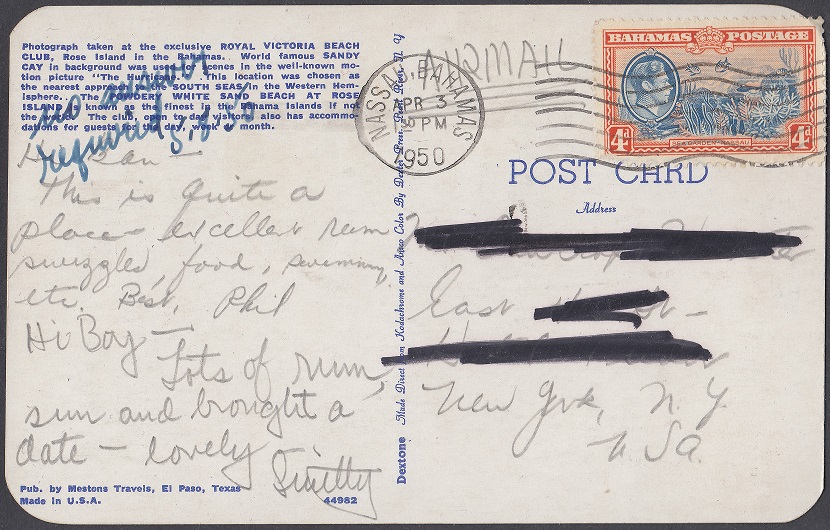 Photograph taken at the exclusive ROYAL VICTORIA BEACH
CLUB, Rose Island in the Bahamas. World famous SANDY
CAY in background was used for scenes in the well-known mo-
tion picture "The Hurricane." This location was chosen as
the nearest approach to the SOUTH SEAS in the Western Hem-
isphere. The POWDERY WHITE SAND BEACH AT ROSE
ISLAND is known as the finest in the Bahama Islands if not
the world. The club, open to day visitors also has accommo-
dations for guests for the day, week or month.
no answer
required
5/8/50
This is quite a
place - excellent rum
swizzles, food, swimming,
etc. Best, Phil
Hi Boy -
Lots of rum,
sun and brought a
date - lovely
Smitty
Pub. by Mestons Travels, El Paso, Texas
Made in U.S.A.
44982
Dextone Made Direct from Kodachrome and Ansco Color By Dexter Press, Pearl River, N. Y.
AIRMAIL
NASSAU, BAHAMAS
APR 3
PM
1950
BAHAMAS POSTAGE
4d
4d
SEA GARDEN · NASSAU
POST CARD
Address
East
New York, N.Y.
USA